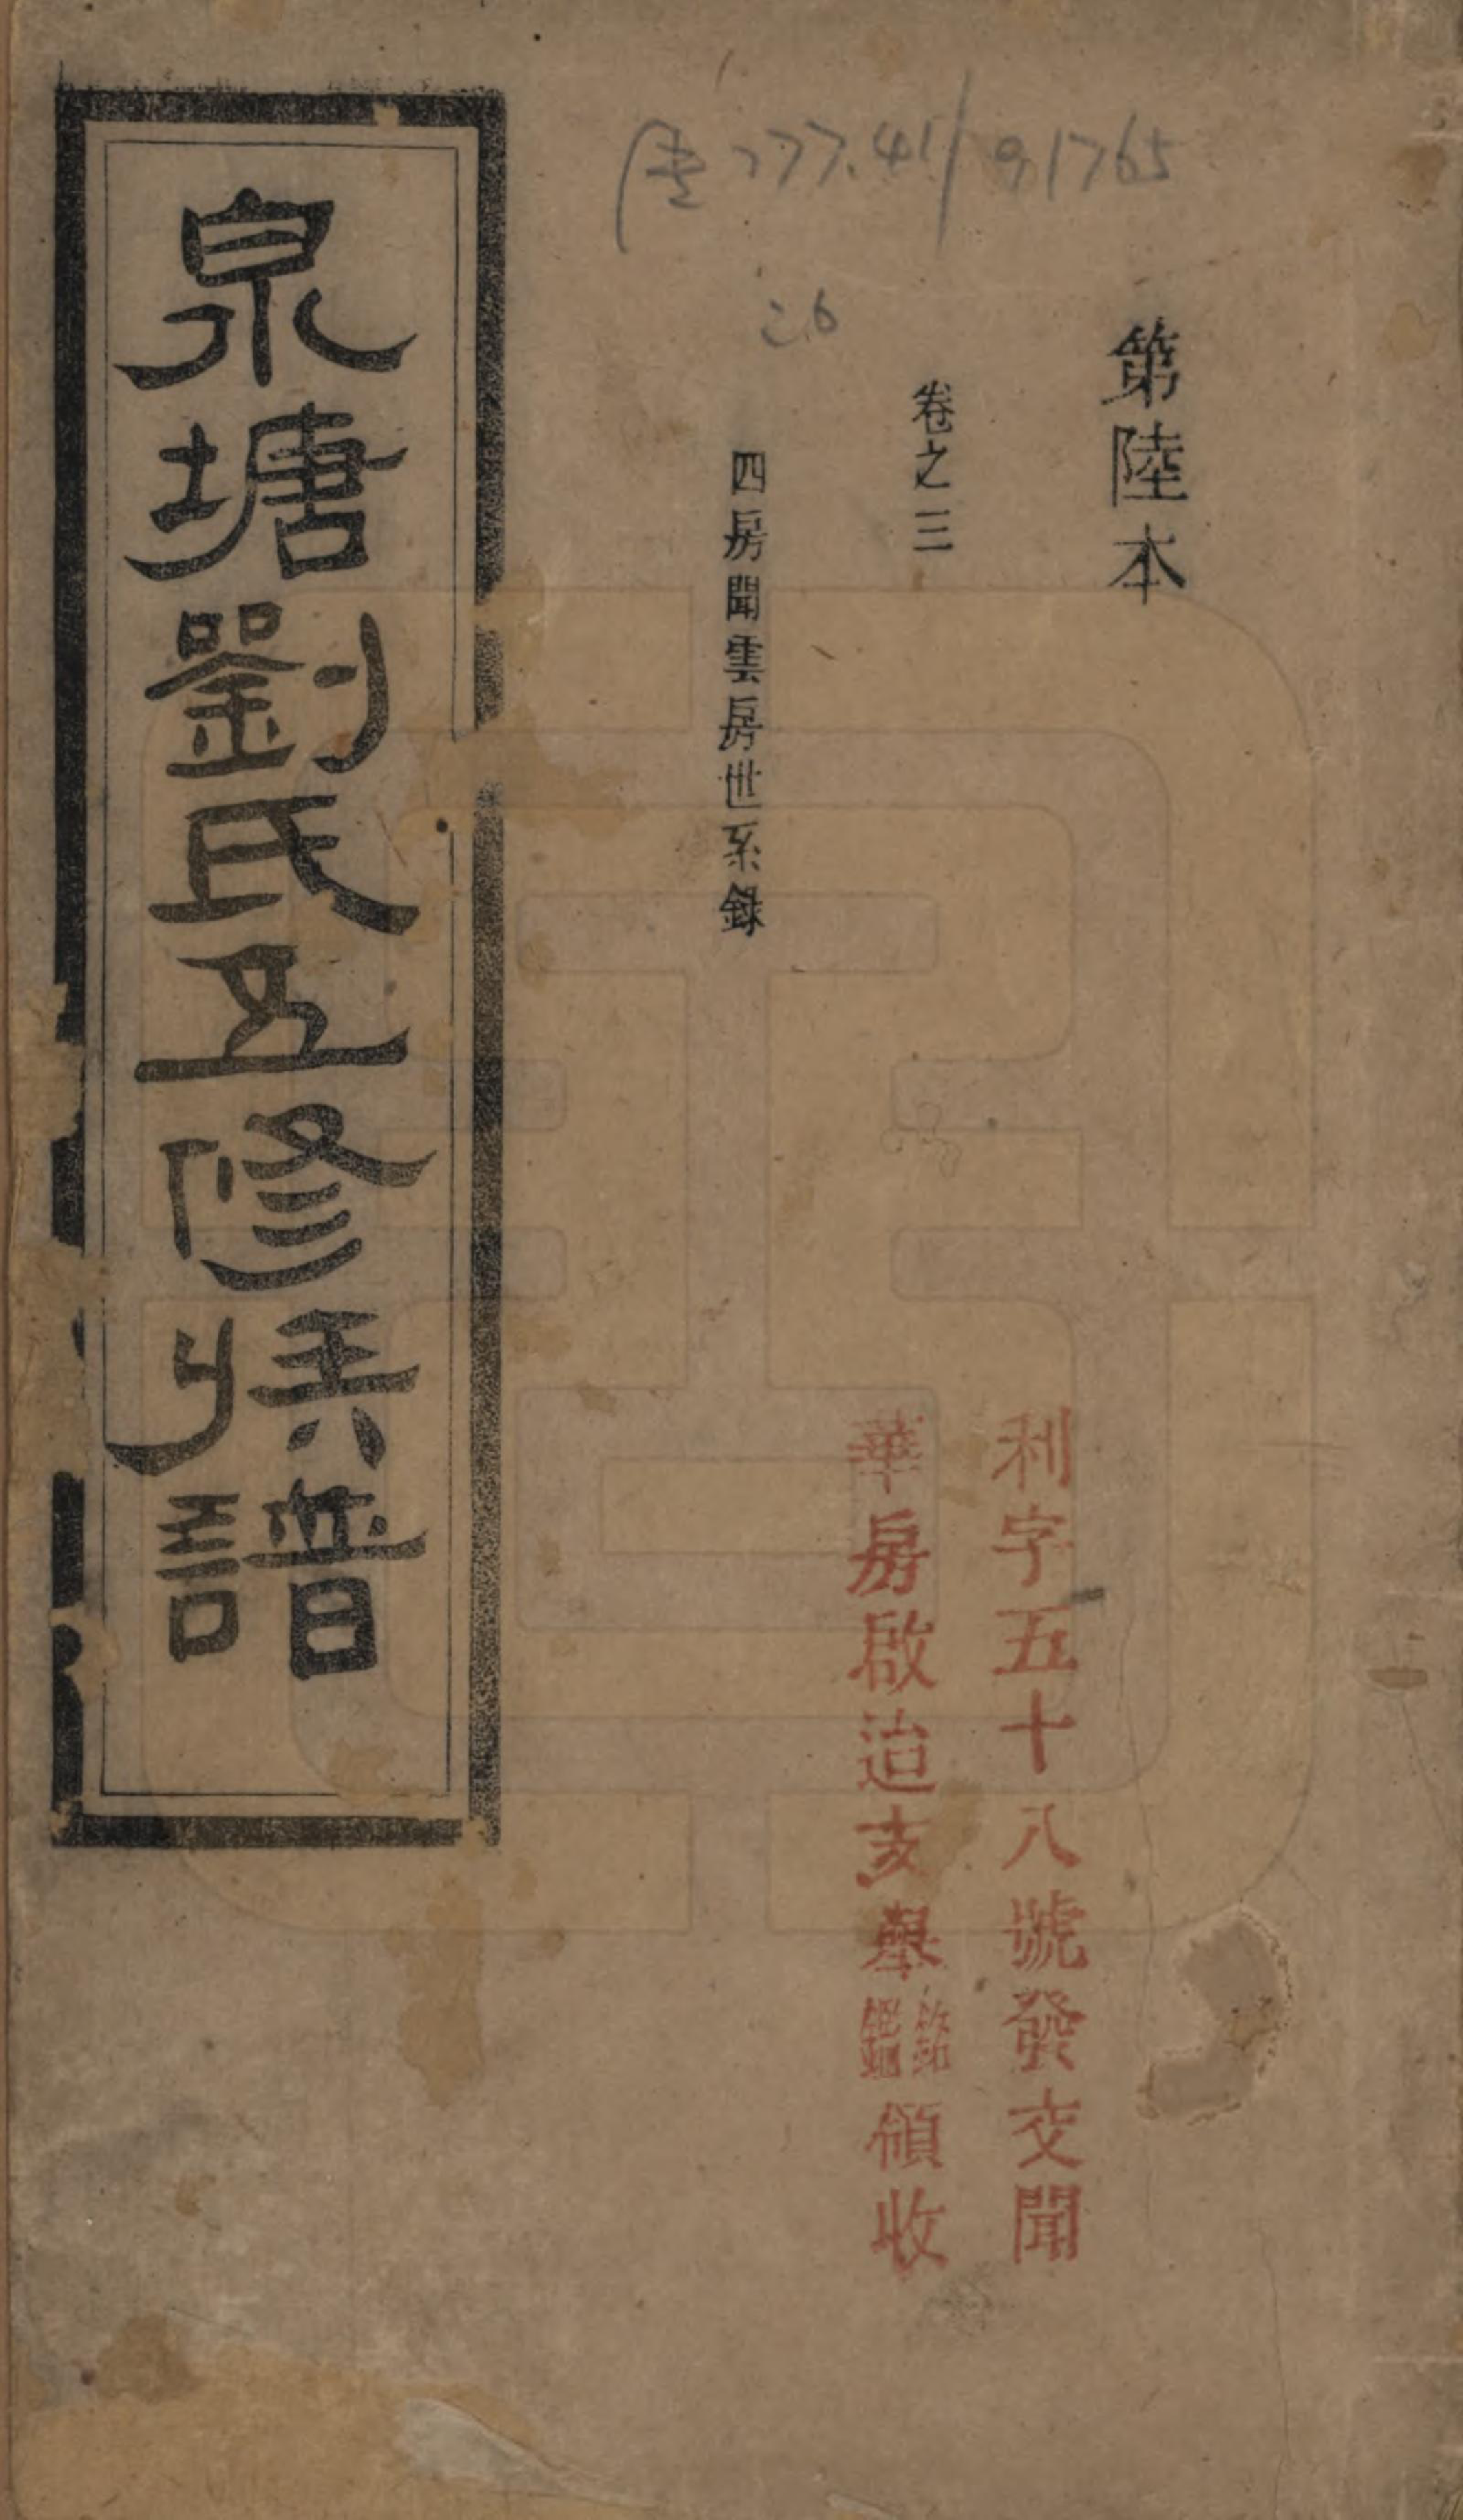 777.41/9.1765
26
第陸本
卷之三
四房聞雲房世系錄
利字五十八號發交聞
華房啟治亥舉 領收
泉塘劉氏五修族譜